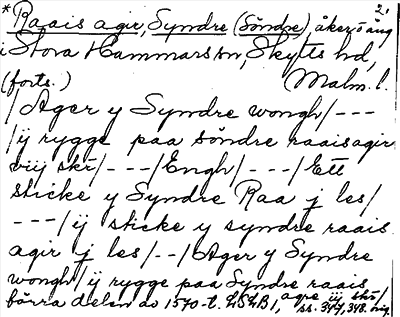 * Raais agir, Syndre (Söndre) åker o äng 2.
i Stora Hammars sn, Skytts hd,
(forts.) Malm. l.
/ Ager y Syndre wongh/---
/ij rygge paa söndre raaisagir
viij skr/---/Engh/---/Ett
sticke y Syndre Raa j les/
---/ij sticke y syndre raais
agir j les/--/Ager y Syndre
wongh/ij rygge paa Syndre raais
agre iij skr/
förra delen av 1570-t. LSLB 1, ss. 347, 348.